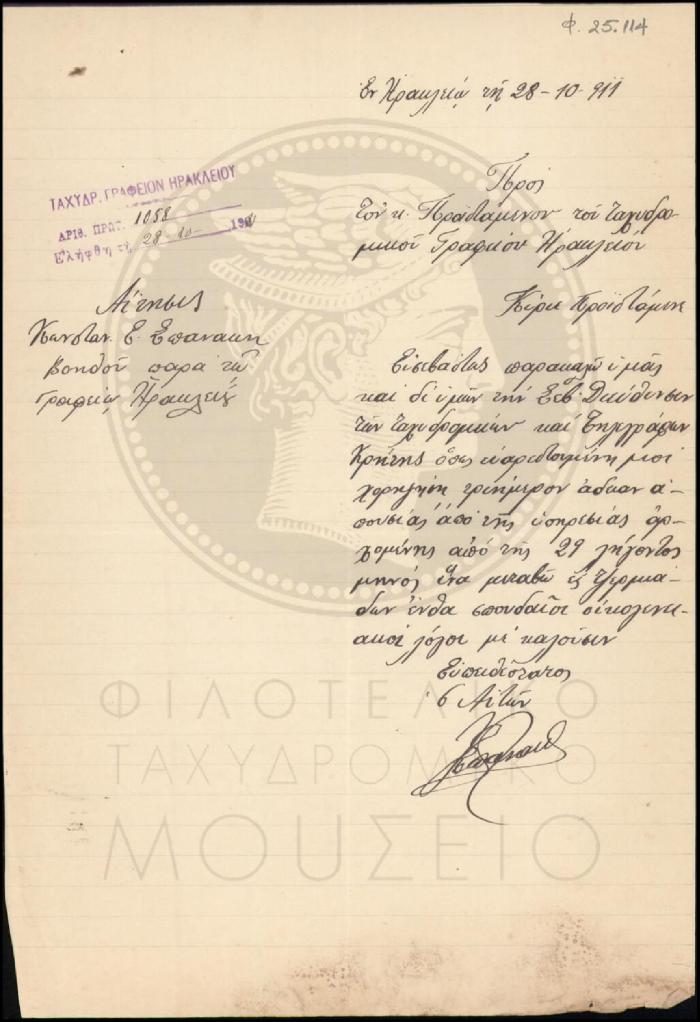 Φ. 25.114
Ἐν Ἡρακλείῳ τῇ 28-10-911
ΤΑΧΥΔΡ. ΓΡΑΦΕΙΟΝ ΗΡΑΚΛΕΙΟΥ
ΑΡΙΘ. ΠΡΩΤ. 1052
Ἐλήφθη τῇ 28-10- 191
Πρὸς
Τὸν κ. Προϊστάμενον τοῦ Ταχυδρο-
μικοῦ Γραφείου Ἡρακλείου
Αἴτησις
Κωνσταν. Ε. Σπανάκη
βοηθοῦ παρὰ τῷ
Γραφείῳ Ἡρακλείου
Κύριε Προϊστάμενε
Εὐσεβάστως παρακαλῶ ὑμᾶς
καὶ δι' ὑμῶν τὴν Σεβ. Διεύθυνσιν
τῶν ταχυδρομικῶν καὶ Τηλεγράφων
Κρήτης ὅπως εὐαρεστουμένη μοὶ
χορηγήσῃ τριήμερον ἄδειαν ἀ-
πουσίας ἀπὸ τῆς ὑπηρεσίας ἀρ-
χομένης ἀπὸ τῆς 29 λήγοντος
μηνὸς ἵνα μεταβῶ εἰς Τζερμιά-
δων ἔνθα σπουδαῖοι οἰκογενει-
ακοὶ λόγοι μὲ καλοῦσιν
Εὐπειθέστατος
ὁ Αἰτῶν
ΦΙΛΟΤΕΛΙΚΟ
ΤΑΧΥΔΡΟΜΙΚΟ
ΜΟΥΣΕΙΟ